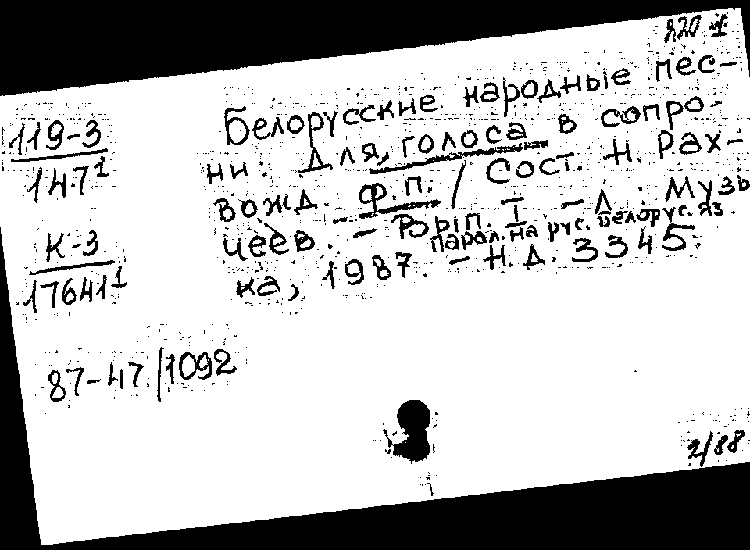 220 1
119-3
147¹
К-3
17641¹
Белорусские народные пес-
ни. Для голоса в сопро-
вожд. ф.п. / Сост. Н. Рах-
чеев. – Вып. I. – Л. : Музы
ка, 1987. – Н.Д. 3345.
Парал. на рус. Белорус. яз.
87-47/1092
2/88